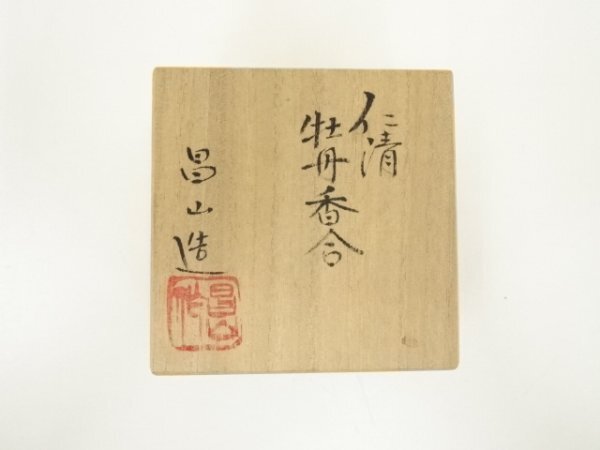 仁清
牡丹香合
昌山造
昌山